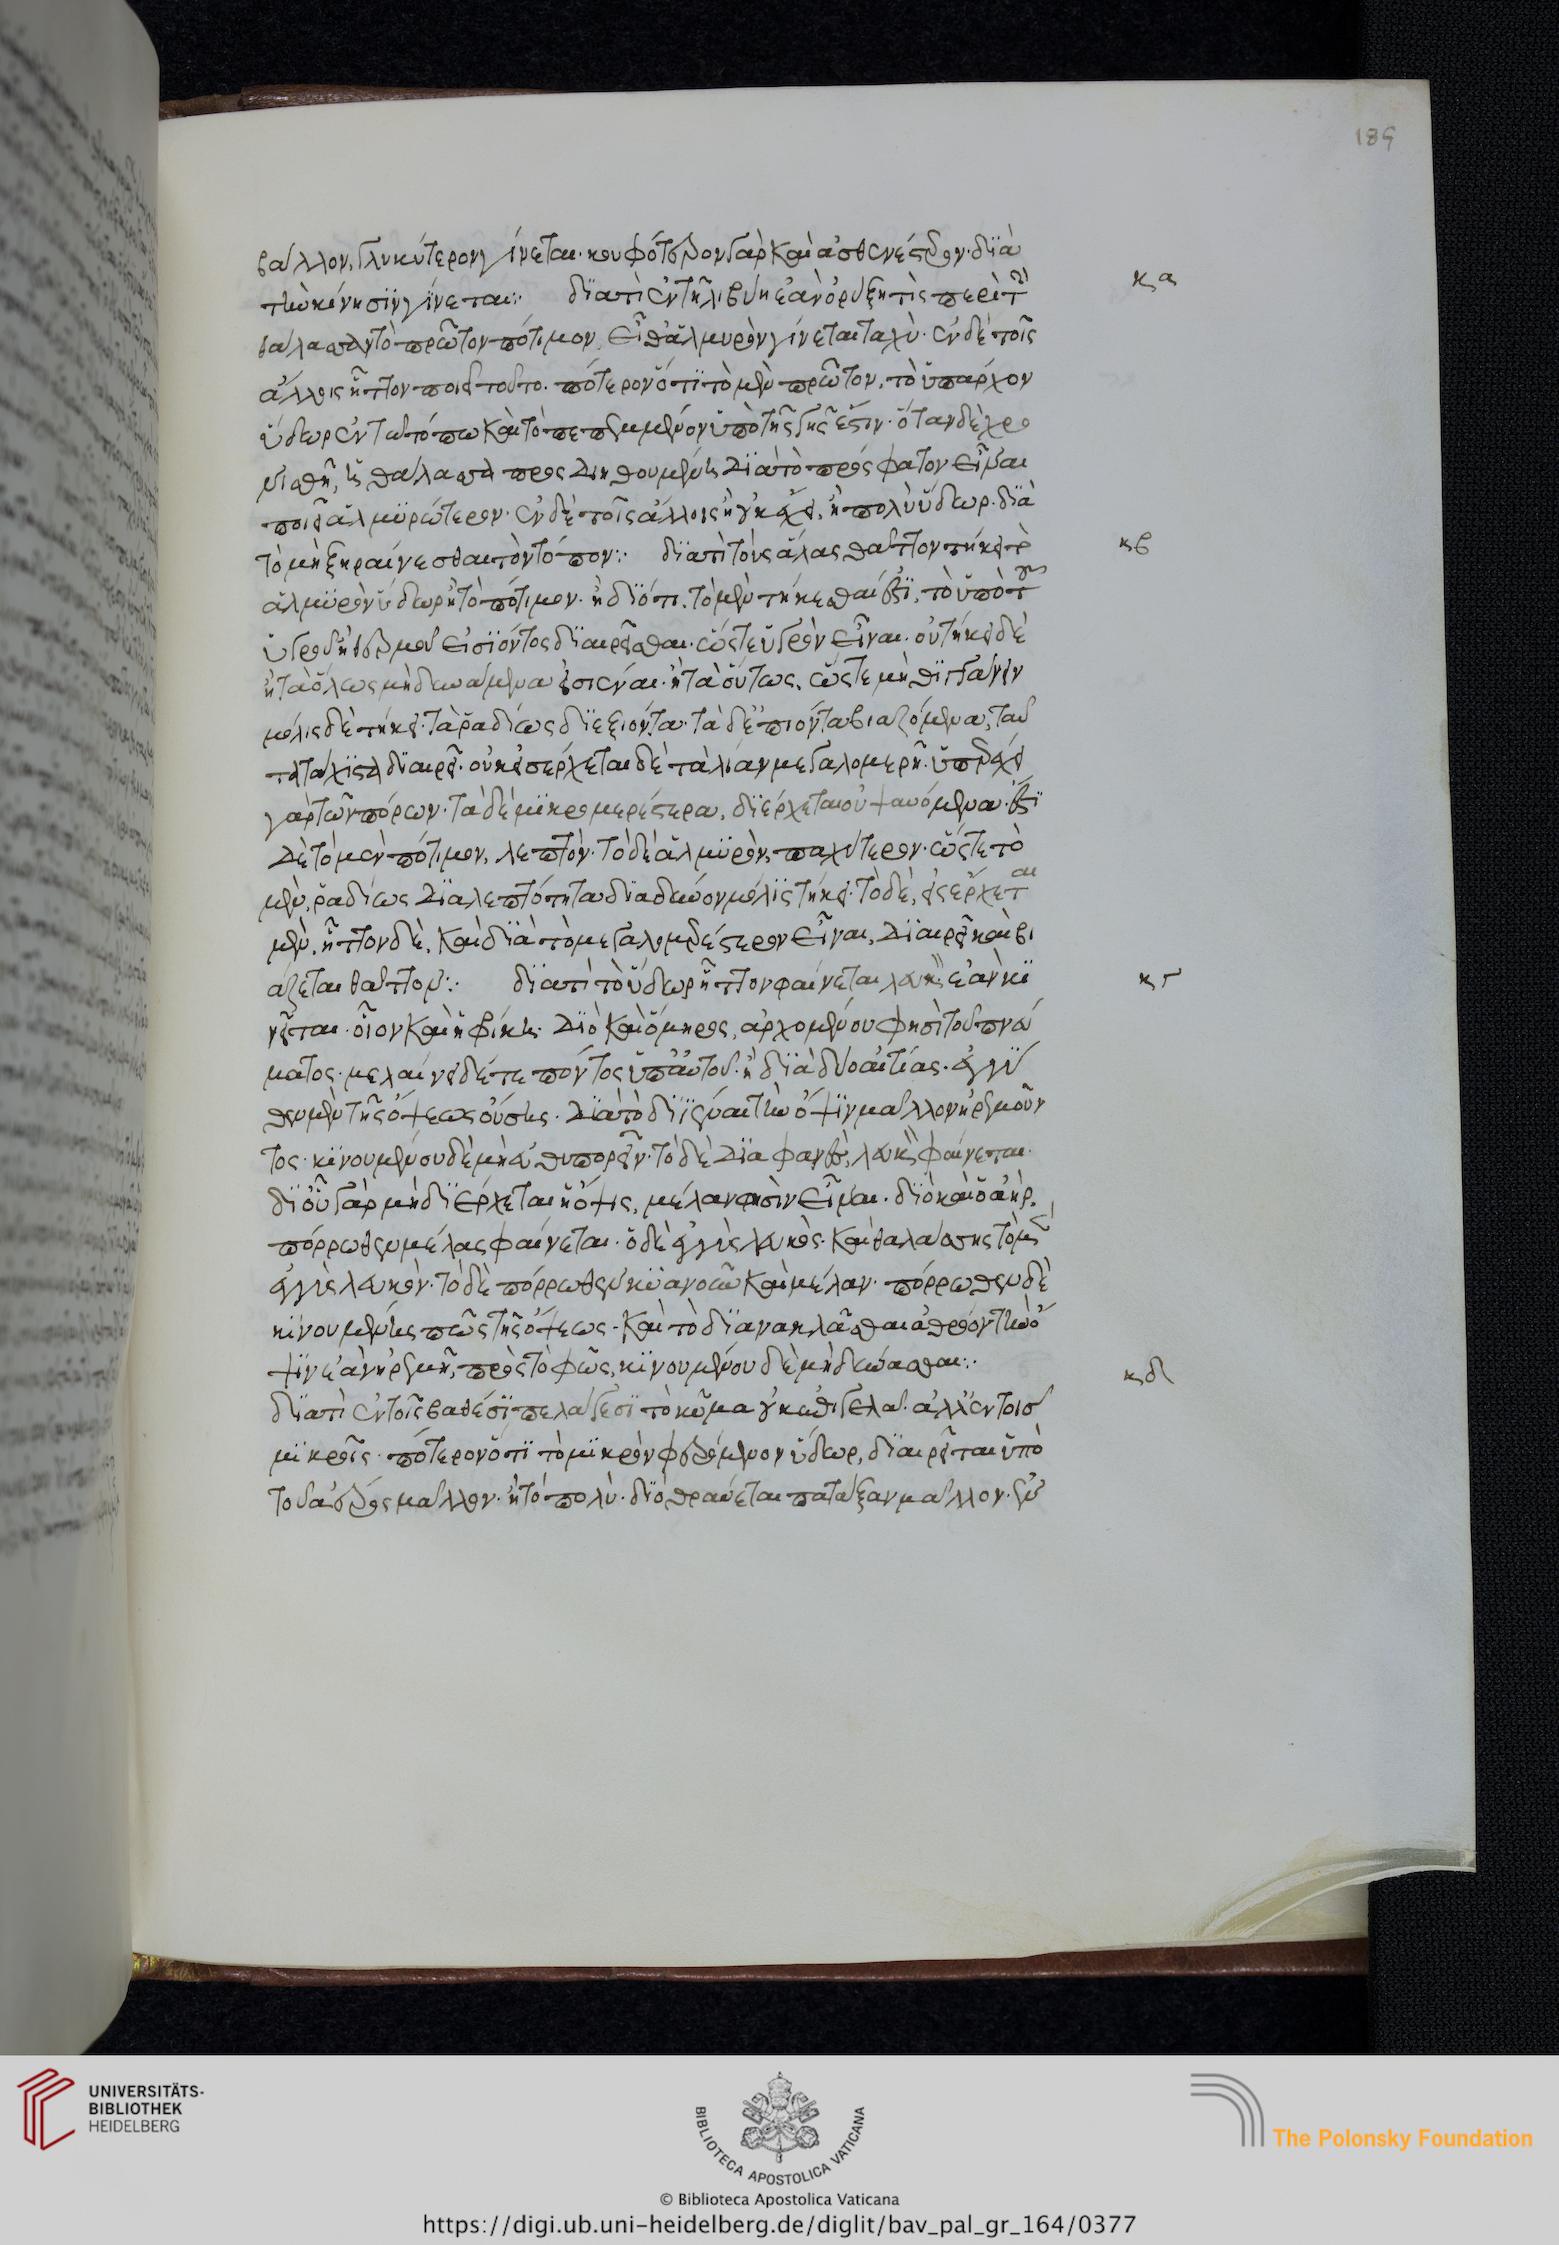 189
βάλλον, γλυκύτερον γίνεται· κουφότερον γὰρ καὶ ἀσθενέστερον· διὰ
τὴν κίνησιν γίνεται:· διατί ἐν τῆ λιβύη ἐὰν ὀρύξη τις περὶ τ
κα
θάλασσαν τὸ πρῶτον πότιμον, εἶθ' ἁλμυρὸν γίνεται ταχύ· ἐν δὲ τοῖς
ἄλλοις ἧττον ποιεῖ τοῦτο· πότερον ὅτι τὸ μὲν πρῶτον, τὸ ὑπάρχον
ὕδωρ ἐν τῶ τόπω καὶ τὸ πεπεμμένον ὑπὸ τῆς γῆς ἐστιν· ὅταν δὲ χρο
νισθῆ, ἡ θάλασσα προσδιηθουμένη διὰ τὸ πρόσφατον εἶναι
ποιεῖ ἁλμυρώτερον· ἐν δὲ τοῖς ἄλλοις ἢ οὐκ ἔχει, ἢ πολὺ ὕδωρ· διὰ
τὸ μὴ ξηραίνεσθαι τὸν τόπον:· διατί τοὺς ἅλας θᾶττον τήκει τὸ
κβ
ἁλμυρὸν ὕδωρ ἢ τὸ πότιμον· ἢ διότι, τὸ μὲν τήκεσθαί ἐστι, τὸ ὑπὸ τ
ὑγροῦ ἢ θερμοῦ εἰσιόντος διαιρεῖσθαι· ὥστε ὑγρὸν εἶναι· οὐ τήκει δὲ
ἢ τὰ ὅλως μὴ δυνάμενα εἰσιέναι· ἢ τὰ οὕτως, ὥστε μὴ θιγγάνειν
μόλις δὲ τήκει· τὰ ῥαδίως διεξιόντα· τὰ δ' ἐπιόντα βιαζόμενα, ταῦ
τα τάχιστα διαιρεῖ· οὐκ εἰσέρχεται δὲ τὰ λίαν μεγαλομερῆ· ὑπερέχει
γὰρ τῶν πόρων· τὰ δὲ μικρομερέστερα, διέρχεται οὐ ψαυόμενα· ἐστὶ
δὲ τὸ μὲν πότιμον, λεπτόν· τὸ δὲ ἁλμυρὸν, παχύτερον· ὥστε τὸ
μὲν, ῥαδίως διὰ λεπτότητα διαδυόμενον μόλις τήκει· τὸ δὲ, εἰσέρχεται
μὲν, ἧττον δὲ, καὶ διὰ τὸ μεγαλομερέστερον εἶναι, διαιρεῖ καὶ βι
άζεται θᾶττον:· διατί τὸ ὕδωρ ἧττον φαίνεται λευκὸν ἐὰν κι
κγ
νεῖται· οἷον καὶ ἡ φρίκη· διὸ καὶ ὅμηρος, ἀρχομένου φησὶ τοῦ πνεύ
ματος· μελαίνει δέ τε πόντος ὑπ' αὐτοῦ· ἢ διὰ δύο αἰτίας· ἐγγύ
θεν μὲν τῆς ὄψεως οὔσης· διὰ τὸ διιέναι τὴν ὄψιν μᾶλλον ἠρεμοῦν
τος· κινουμένου δὲ μὴ εὐθυπορεῖν· τὸ δὲ διαφανὲς, λευκὸν φαίνεται·
δι' οὗ γὰρ μὴ διέρχεται ἡ ὄψις, μέλαν φησὶν εἶναι· διὸ καὶ ὁ ἀὴρ,
πόρρωθεν μέλας φαίνεται· ὁ δὲ ἐγγὺς λευκός· καὶ θαλάσσης τὸ μὲν
ἐγγὺς λευκόν· τὸ δὲ πόρρωθεν κυανοῦν καὶ μέλαν· πόρρωθεν δὲ
κινουμένης πῶς τῆς ὄψεως· καὶ τὸ διανακλᾶσθαι ἀθρόον τὴν ὄ
ψιν ἐὰν ἠρεμῆ, πρὸς τὸ φῶς, κινουμένου δὲ μὴ δύνασθαι:·
διατί ἐν τοῖς βαθέσι πελάγεσι τὸ κῦμα οὐκ ἐπιγελᾶ· ἀλλ' ἐν τοῖς
κδ
μικροῖς· πότερον ὅτι τὸ μικρὸν φερόμενον ὕδωρ, διαιρεῖται ὑπὸ
τοῦ ἀέρος μᾶλλον· ἢ τὸ πολύ· διὸ θραύεται πατάξαν μᾶλλον· ἐν
UNIVERSITÄTS-
BIBLIOTHEK
HEIDELBERG
BIBLIOTECA APOSTOLICA VATICANA
The Polonsky Foundation
© Biblioteca Apostolica Vaticana
https://digi.ub.uni-heidelberg.de/diglit/bav_pal_gr_164/0377